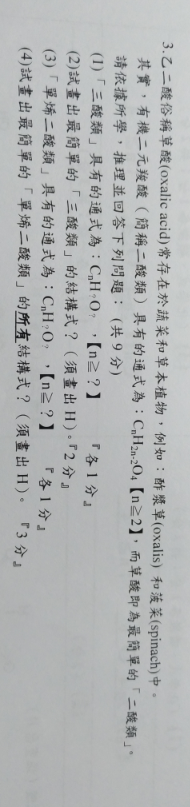 3.乙二酸俗稱草酸(oxalic acid)常存在於蔬菜和草本植物，例如：酢漿草(oxalis) 和菠菜(spinach)中。
其實，有機二元羧酸（簡稱二酸類）具有的通式為：CₙH₂ₙ₋₂O₄【n≧2】，而草酸即為最簡單的「二酸類」。
請依據所學，推理並回答下列問題：（共 9 分）
(1)「三酸類」具有的通式為：CₙH?O?  ，【n≧？】  『各 1 分』
(2)試畫出最簡單的「三酸類」的結構式？（須畫出 H）。『2 分』
(3)「單烯二酸類」具有的通式為：CₙH?O? ，【n≧？】  『各 1 分』
(4)試畫出最簡單的「單烯二酸類」的所有結構式？（須畫出 H）。 『3 分』